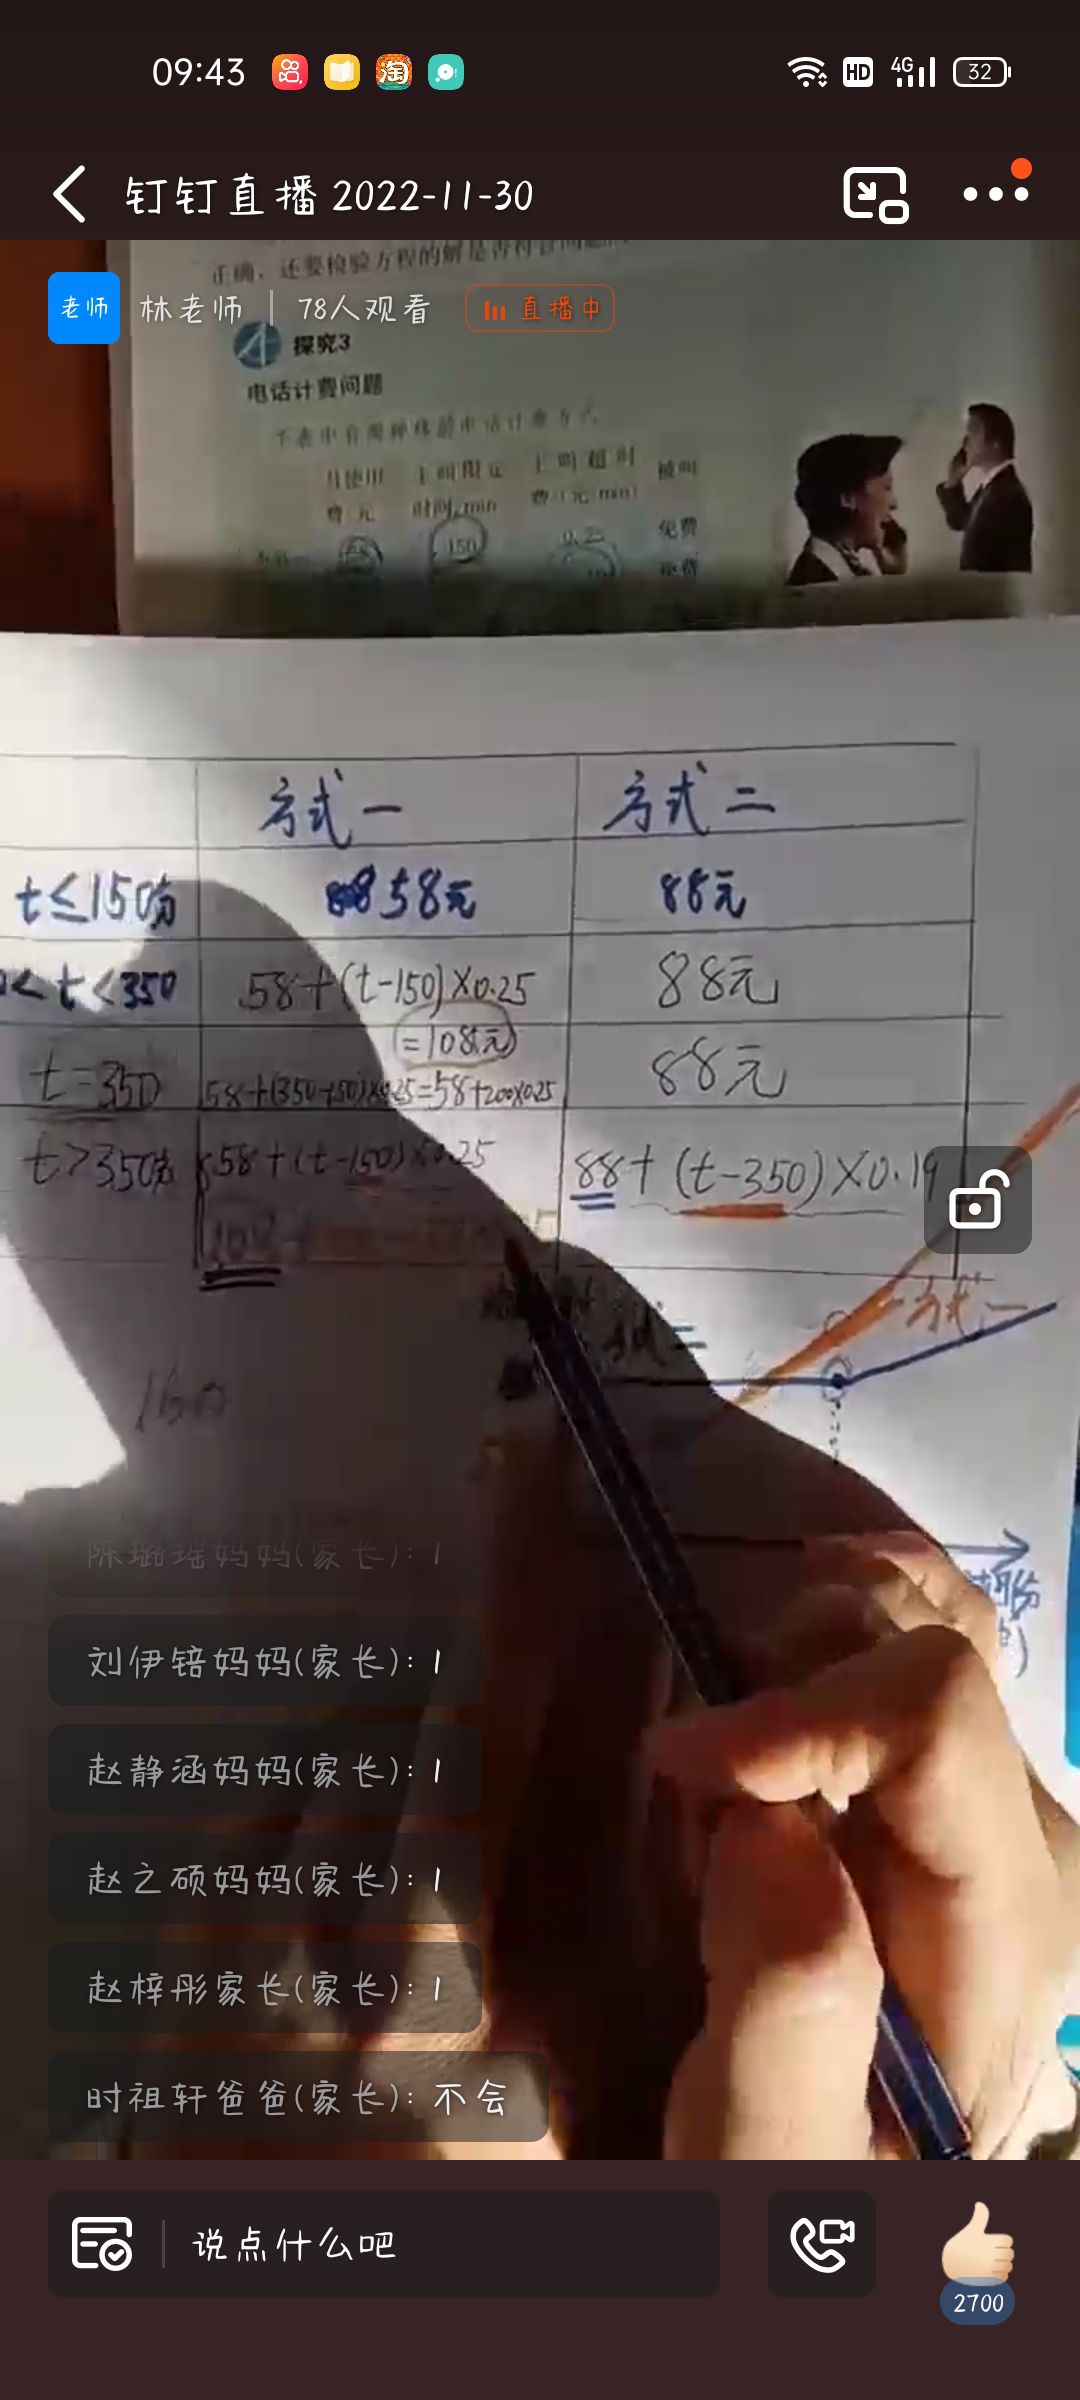 09:43
HD 4G 32
钉钉直播 2022-11-30
正确,还要检验方程的解是否符合问题
老师 林老师 78人观看 直播中
探究3
电话计费问题
下表中有两种移动电话计费方式
月使用 主叫限定 主叫超时 被叫
费/元 时间/min 费/(元/min)
58 150 0.25 免费
免费
方式一 方式二
t≤150分 58元 88元
<t<350 58+(t-150)×0.25 88元
=108(元)
t=350 58+(350-150)×0.25=58+200×0.25 88元
t>350分 58+(t-150)×0.25 88+(t-350)×0.19
108
方式二 方式一
160
陈璐瑶妈妈(家长): 1
刘伊锫妈妈(家长): 1
赵静涵妈妈(家长): 1
赵之硕妈妈(家长): 1
赵梓彤家长(家长): 1
时祖轩爸爸(家长): 不会
说点什么吧
2700